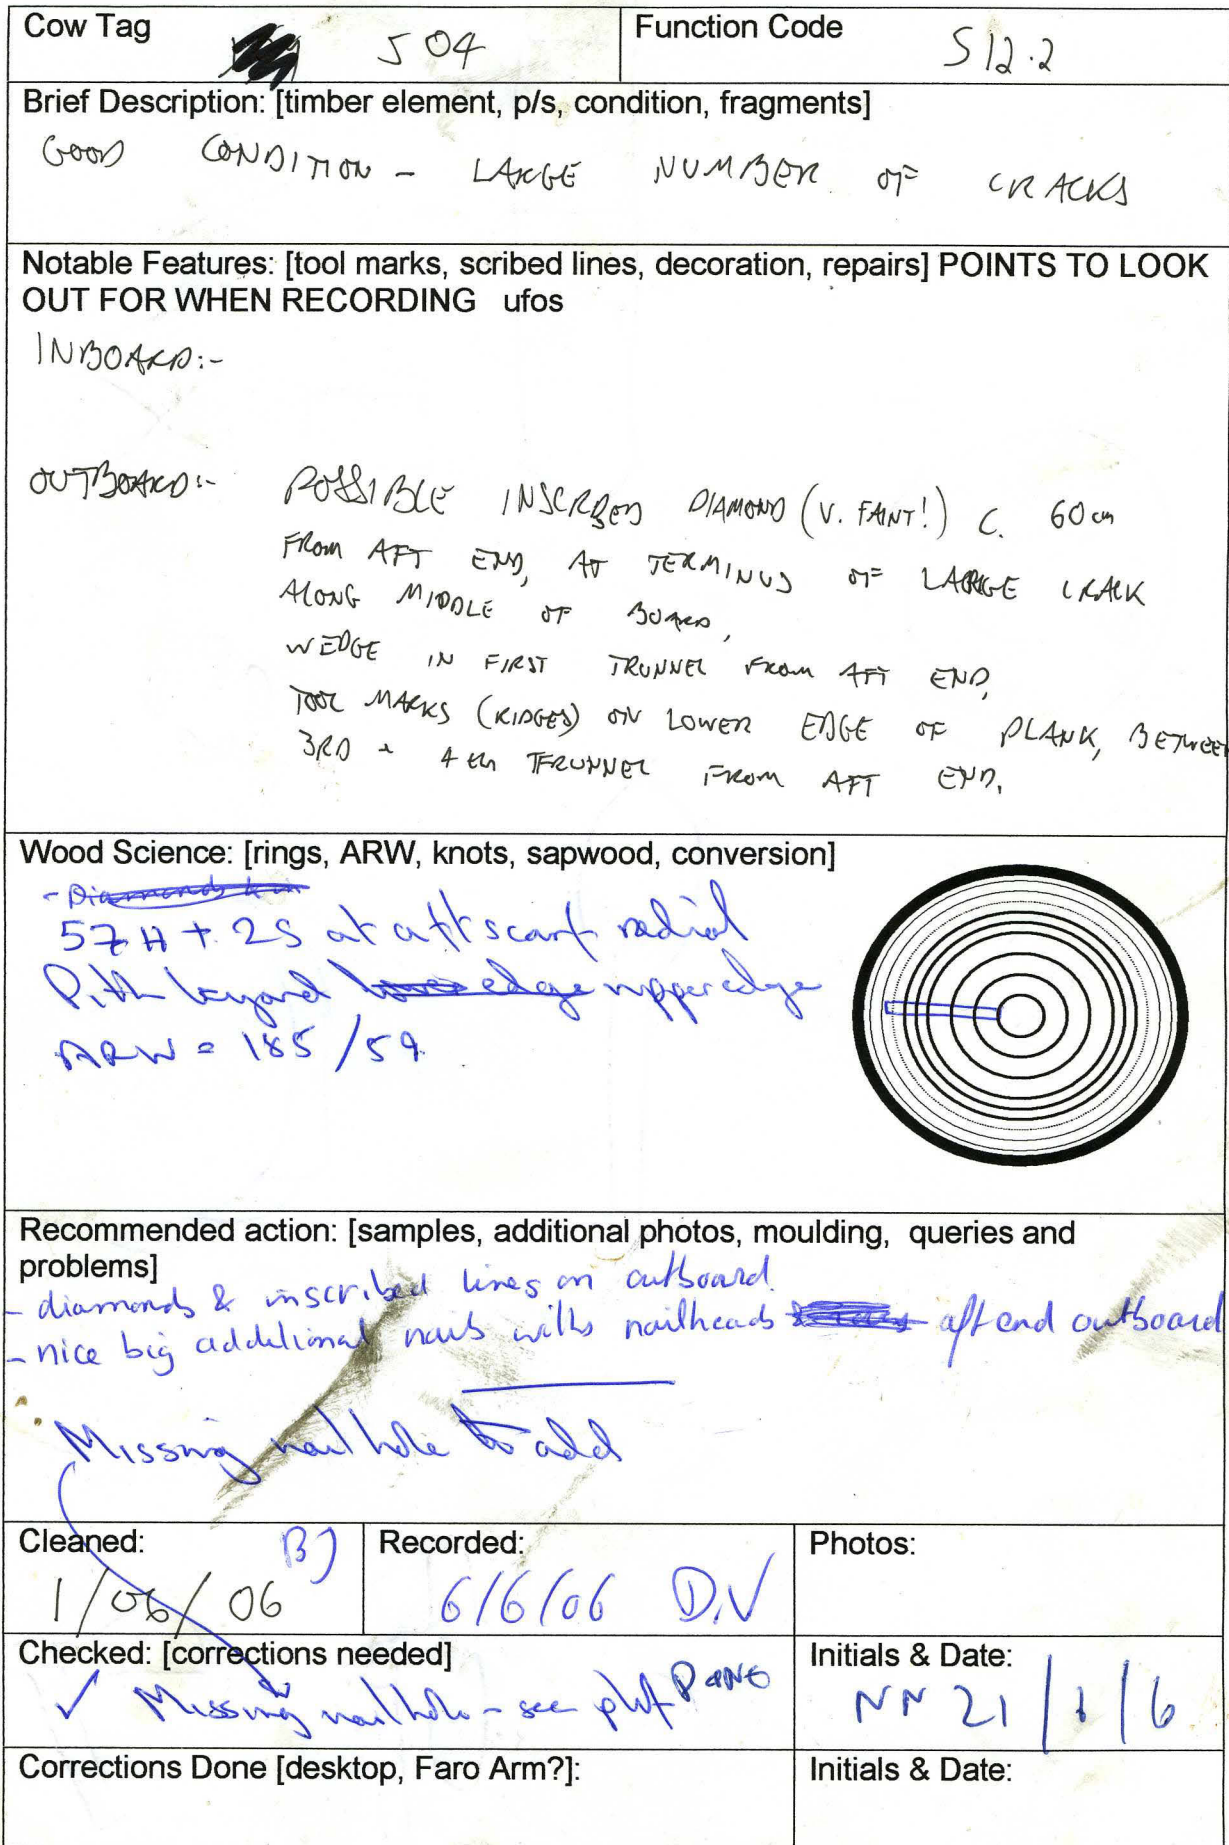 Cow Tag 504 Function Code S12.2
Brief Description: [timber element, p/s, condition, fragments]
GOOD CONDITION - LARGE NUMBER OF CRACKS
Notable Features: [tool marks, scribed lines, decoration, repairs] POINTS TO LOOK
OUT FOR WHEN RECORDING ufos
INBOARD:-
OUTBOARD:- POSSIBLE INSCRBED DIAMOND (V. FAINT!) C. 60cm
FROM AFT END, AT TERMINUS OF LARGE CRACK
ALONG MIDDLE OF BOARD,
WEDGE IN FIRST TRUNNEL FROM AFT END,
TOOL MARKS (RIDGES) ON LOWER EDGE OF PLANK, BETWEEN
3RD + 4th TRUNNEL FROM AFT END.
Wood Science: [rings, ARW, knots, sapwood, conversion]
- Diamonds
57H + 2S at aft scarf radial
Pith beyond lower edge upper edge
ARW = 185/59
Recommended action: [samples, additional photos, moulding, queries and
problems]
- diamonds & inscribed lines on outboard
- nice big additional nails with nailheads aft end outboard
Missing nail hole to add
Cleaned: BJ Recorded: Photos:
1/06/06 6/6/06 D.V
Checked: [corrections needed] Initials & Date:
✓ Missing nail hole - see plot NN 21/ /6
Corrections Done [desktop, Faro Arm?]: Initials & Date: